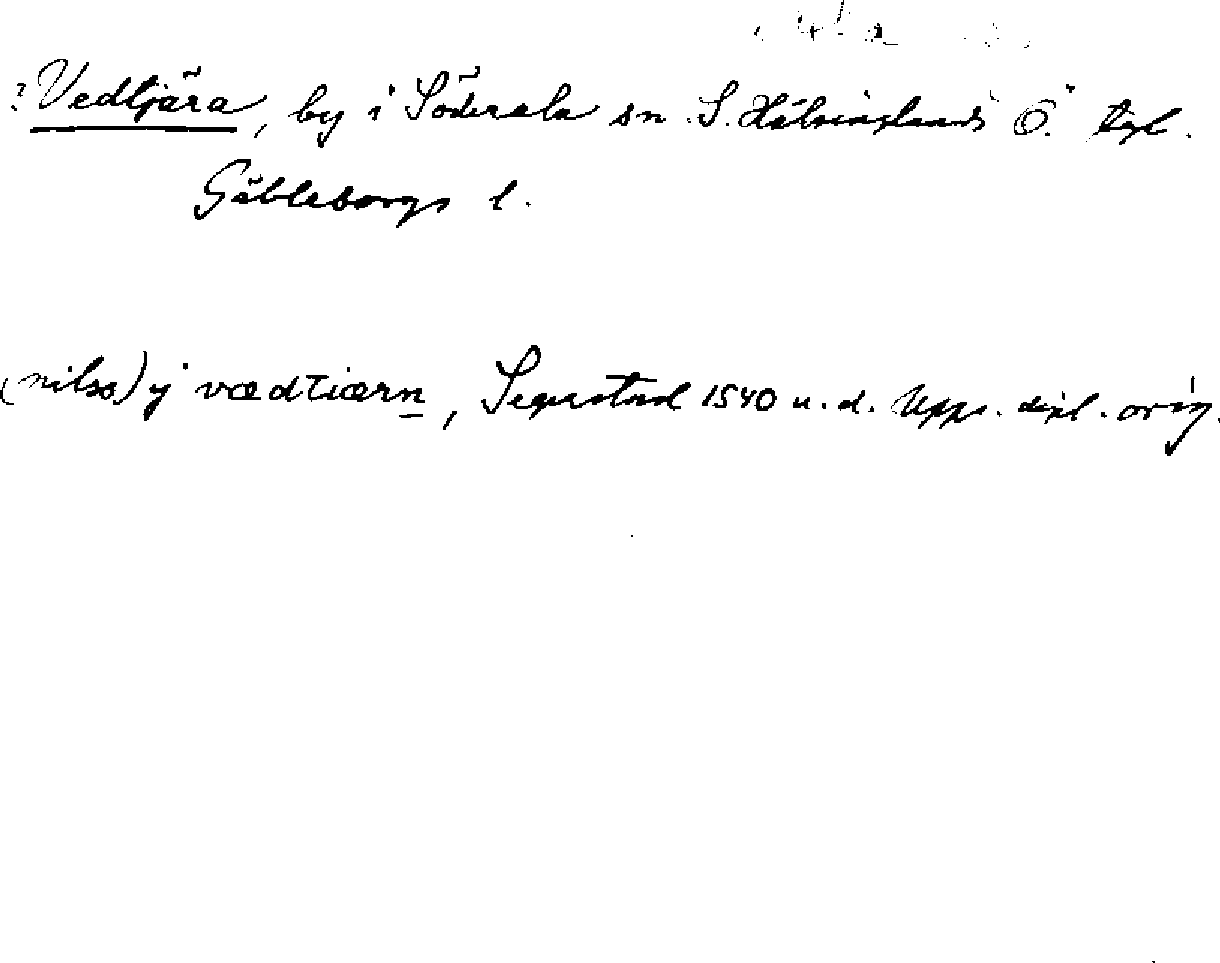 ? Vedtjära, by i Söderala sn. S. Hälsinglands Ö. tgl.
Gävleborgs l.
(nilss) ÿ vædtiærn, Segerstad 1540 u.d. Upps. dipl. orig.